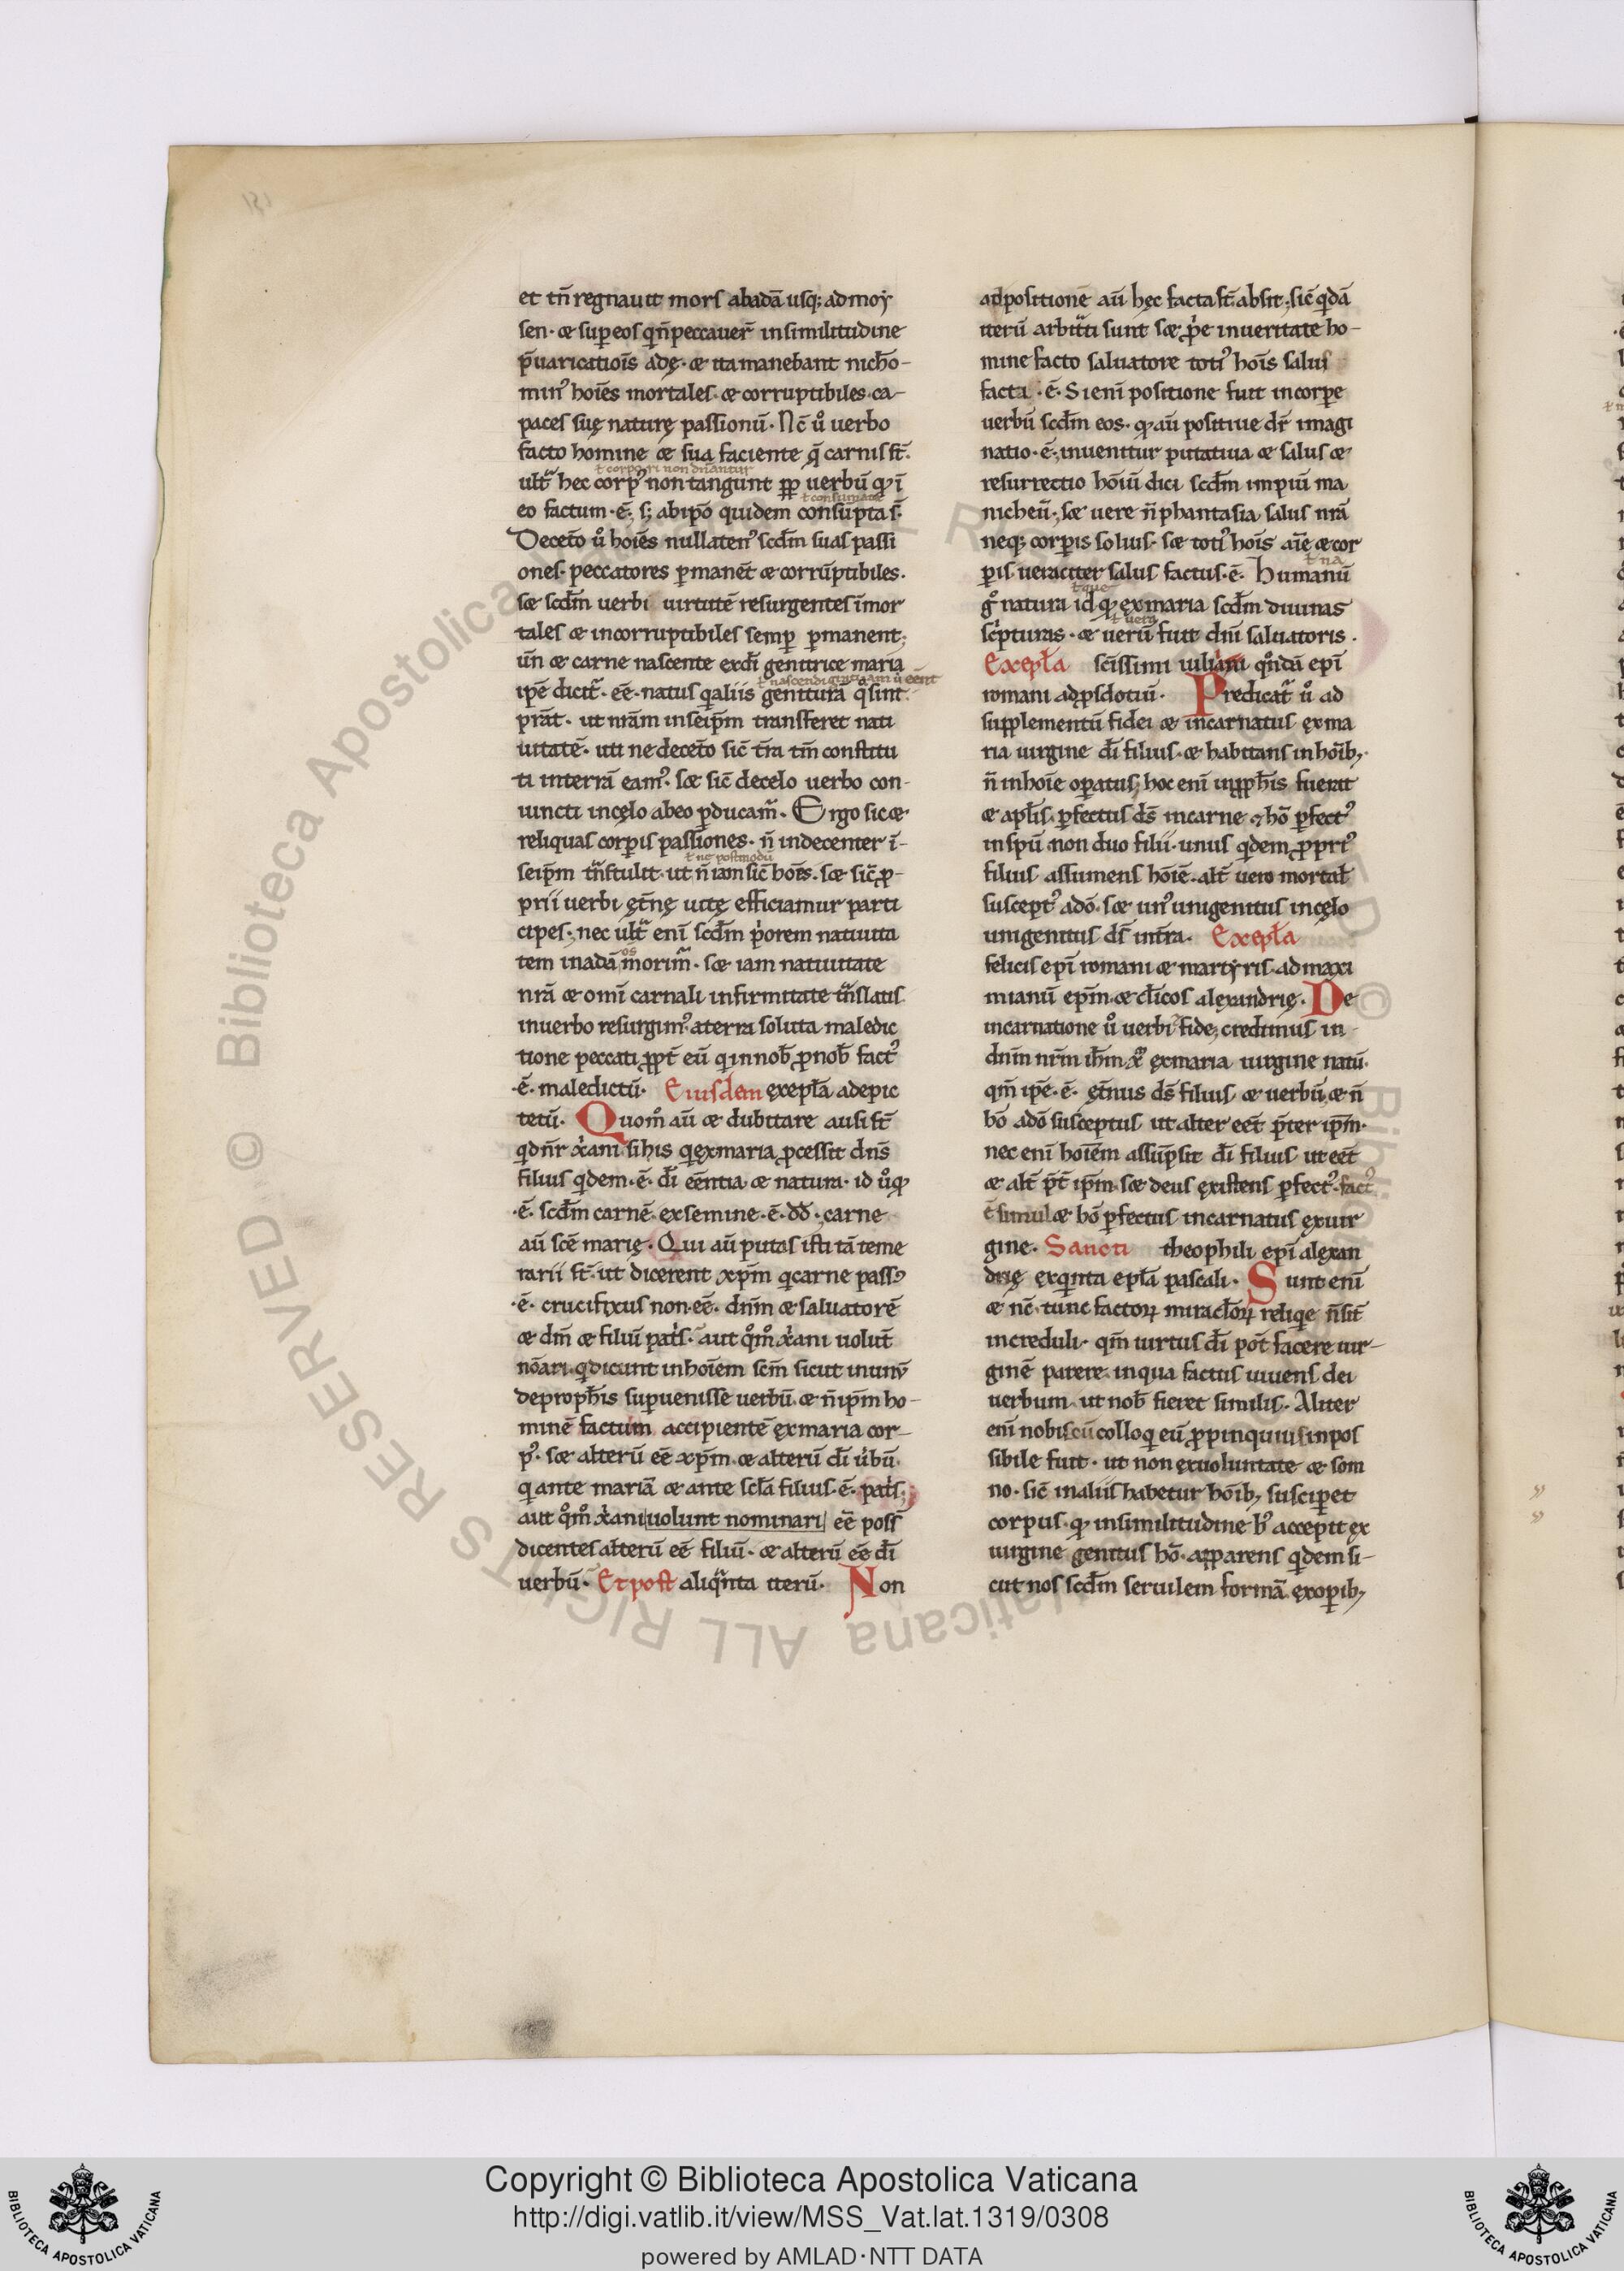 et tn̄ regnauit mors abadā usq; ad moẏ
sen· & suꝑ eos q̇ n̄ peccauer̄ in similitudine
p̄uaricatiōis adę· & ita manebant nicħo-
min᾽ hoīes mortales· & corruptibiles· ca-
paces suę naturę passionū· Nc̄ ů uerbo
facto homine & sua faciente q̄ carnis st̄·
ł corpori non dn̄antur
ult̄ hec corp᾽ non tangunt ꝓp uerbū qͥ ī
ł consumate
eo factum·ē· s; ab ip̄o quidem consūpta s̄·
De cet̄o ů hoīes nullaten᾽ scd̄m suas passi
ones· peccatores ꝑmanēt & corrūptibiles·
sꝫ scd̄m uerbi uirtutē resurgentes īmor
tales & incorruptibiles semꝑ ꝑmanent;
un̄ & carne nascente ex dī genitrice maria
ł nascendi gratiam ů eent
ip̄e dicit̄·ēe·natus q̇ aliis geniturā q̇ sint·
p̄rat· ut nr̄am in seip̄m transferet nati
uitatē· uti ne decet̄o sic̄ t̄ra tn̄ constitu
ti in terrā eam᾽· sꝫ sic̄ de celo uerbo con-
iuncti in cęlo ab eo ꝑducam᾽· Ergo sic &
reliquas corꝑis passiones· n̄ indecenter ī-
ł ne postmodū
seip̄m tn̄stulit· ut n̄ iam sic̄ hōis· sꝫ sic̄ ꝓ-
prii uerbi ęt̄nę uitę efficiamur parti
cipes· nec ult̄ enī scd̄m p̓orem natiuita
tem in adā morim᾽· sꝫ iam natiuitate
nrā & omī carnali infirmitate tn̄slatis
in uerbo resurgim᾽ a terra soluta maledic
tione peccati ꝓpt̄ eū q̇ in nob̄ ꝓ nob̄ fact᾽
·ē· maledictū· Eiusdem exepl̄a ad epic
tetū· Quom̊ aū & dubitare ausi st̄
qd̄n̄r xp̓ani si his q̇ ex maria ꝓcessit dn̄s
filius q̇dem·ē· dī eēntia & natura· id ůqͥ
·ē· scd̄m carnē· ex semine·ē· dd̄· carne
aū scē marię· Qui aū putas isti tā teme
rarii st̄ ut dicerent xp̄m q̇ carne pass᾽
·ē· crucifixus non·eē· dn̄m & saluatorē
& dm̄ & filiū pat̓s· aut q̊m̊ xp̓ani uolut̄
nōari q̇ dicunt in hoīem scm̄ sicut in unū
de proph̄is suꝑuenisse uerbū & n̄ ip̄m ho-
minē factum accipientē ex maria cor-
p᾽· sꝫ alterū eē xp̄m & alterū dī ůbū
q̇ ante mariā & ante scl̄a filius·ē· pat̓s;
aut q̊m̊ xp̓ani uolunt nominari eē poss̄
dicentes alt̄erū eē filiū· & alterū eē dī
uerbū· Et post aliq̄nta iterū· Non
ad positionē aū hęc facta st̄ absit; sic̄ q̇dā
iterū arbit̄ti sunt sꝫ p̓e in ueritate ho-
mine facto saluatore toti᾽ hoīs salus
facta·ē· Si enī positione fuit in corꝑe
uerbū scd̄m eos· qͥ aū positiue dr̄ imagi
natio·ē· inuenitur putatiua & salus &
resurrectio hōiū dici scd̄m impiū ma
nicheū· sꝫ uere n̄ phantasia salus nrā
neq; corꝑis solius· sꝫ toti᾽ hoīs aīe & cor
ł na
ꝑis ueraciter salus factus·ē· Humanū
ł que
g̊ natura id qͥ ex maria scd̄m diuinas
ł uera
sc̓pturas· & uerū fuit dn̄i saluatoris·
Exepl̄a sc̄issimi iuliani q̊ndā epī
romani ad ꝓsdotiū· Predicat᾽ ů ad
supplementū fidei & incarnatus ex ma
ria uirgine dī filius· & habitans in hōib;
n̄ in hoīe oꝑatus; hoc enī in ꝓph̄is fuerat
& apl̄is· ꝑfectus ds̄ in carne & hō ꝑfect᾽
in spū· non duo filii· unus q̇dem ꝓpri᾽
filius assumens hōiē· alt̄ uero mortal̄
suscept᾽ a dō· sꝫ un᾽ unigenitus in cęlo
unigenitus ds̄ in tr̄a· Exepl̄a
felicis epī romani & martẏris ad maxi
mianū ep̄m & cl̄icos alexandrię· De
incarnatione ů uerbi & fide, credimus in
dn̄m nr̄m ih̄m xp̄ ex maria uirgine natū·
qm̄ ip̄e·ē· ęt̄nus ds̄ filius & uerbū & n̄
hō a dō susceptus ut alter eēt p̄ter ip̄m·
nec enī hoīem assūpsit dī filius ut eēt
& alt̄ p̄t ip̄m· sꝫ deus existens ꝑfect᾽· fact᾽
ē simul & hō ꝑfectus incarnatus ex uir
gine· Sancti theophili epī alexan
drię ex q̇nta epl̄a pascali· Sunt enī
& nc̄ tunc factoꝝ miracl̄oꝝ reliq̇e n̄ sit̄
increduli· qm̄ uirtus dī pōt facere uir-
ginē parere· in qua factus uiuens dei
uerbum· ut nob̄ fieret similis· Aliter
enī nobiscū colloq̇ eū ꝓpinquius inpos
sibile fuit· ut non ex uoluntate & som
no· sic̄ in aliis habetur hōib; susciꝑet
corpus· qͥ in similitudine h᾽ accepit ex
uirgine genitus hō· apparens q̇dem si-
cut nos scd̄m seruilem formā· ex oꝑib;
Copyright © Biblioteca Apostolica Vaticana
http://digi.vatlib.it/view/MSS_Vat.lat.1319/0308
powered by AMLAD·NTT DATA
BIBLIOTECA APOSTOLICA VATICANA
BIBLIOTECA APOSTOLICA VATICANA